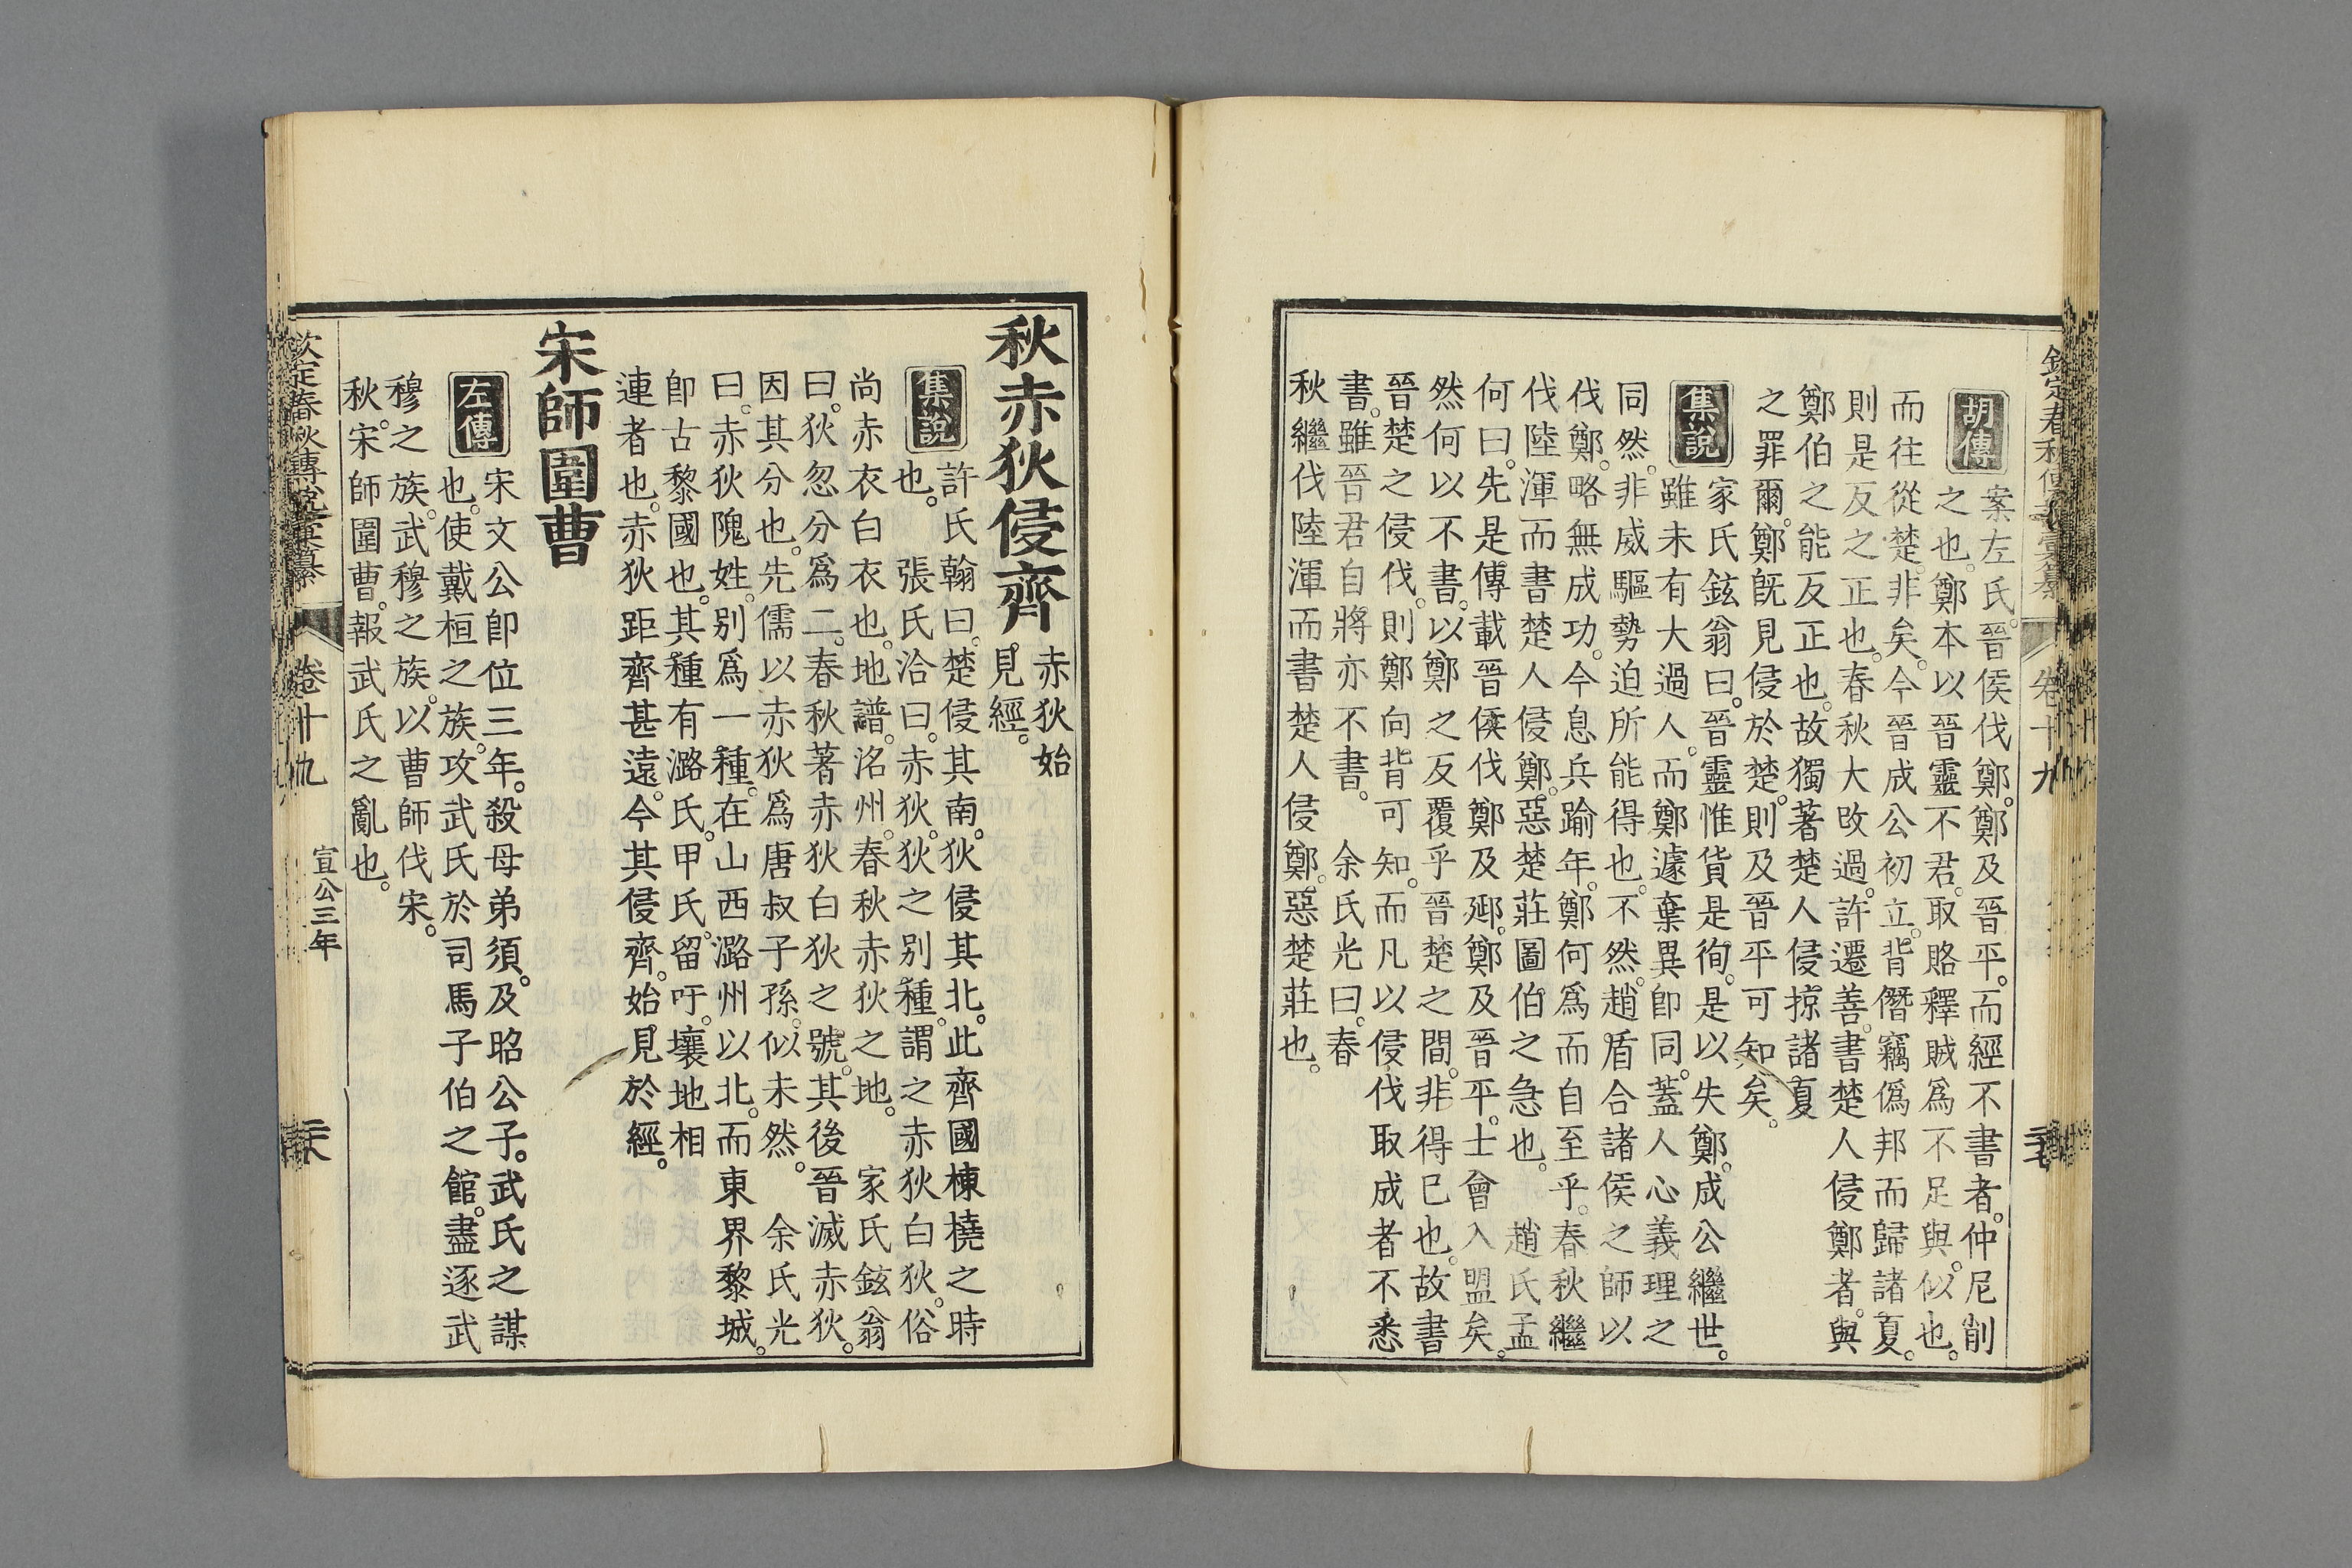 胡傳
案左氏。晉侯伐鄭。鄭及晉平。而經不書者。仲尼削
之也。鄭本以晉靈不君。取賂釋賊爲不足與。似也。
而往從楚。非矣。今晉成公初立。背僭竊僞邦而歸諸夏。
則是反之正也。春秋大改過。許遷善。書楚人侵鄭者。與
鄭伯之能反正也。故獨著楚人侵掠諸夏
之罪爾。鄭旣見侵於楚。則及晉平可知矣。
集說
家氏鉉翁曰。晉靈惟貨是徇。是以失鄭。成公繼世。
雖未有大過人。而鄭遽棄異卽同。蓋人心義理之
同然。非威驅勢迫所能得也。不然。趙盾合諸侯之師以
伐鄭。略無成功。今息兵踰年。鄭何爲而自至乎。春秋繼
伐陸渾而書楚人侵鄭。惡楚莊圖伯之急也。 趙氏孟
何曰。先是傳載晉侯伐鄭及郔。鄭及晉平。士會入盟矣。
然何以不書。以鄭之反覆乎晉楚之間。非得已也。故書
晉楚之侵伐。則鄭向背可知。而凡以侵伐取成者不悉
書。雖晉君自將亦不書。 余氏光曰。春
秋繼伐陸渾而書楚人侵鄭。惡楚莊也。
秋赤狄侵齊
赤狄始
見經。
集說
許氏翰曰。楚侵其南。狄侵其北。此齊國棟橈之時
也。 張氏洽曰。赤狄。狄之別種。謂之赤狄白狄。俗
尚赤衣白衣也。地譜。洺州。春秋赤狄之地。 家氏鉉翁
曰。狄忽分爲二。春秋著赤狄白狄之號。其後晉滅赤狄。
因其分也。先儒以赤狄爲唐叔子孫。似未然。 余氏光
曰。赤狄隗姓。別爲一種。在山西潞州以北。而東界黎城。
卽古黎國也。其種有潞氏。甲氏。留吁。壤地相
連者也。赤狄距齊甚遠。今其侵齊。始見於經。
宋師圍曹
左傳
宋文公卽位三年。殺母弟須。及昭公子。武氏之謀
也。使戴桓之族。攻武氏於司馬子伯之館。盡逐武
穆之族。武穆之族。以曹師伐宋。
秋。宋師圍曹。報武氏之亂也。
欽定春秋傳說彙纂 卷十九 宣公三年